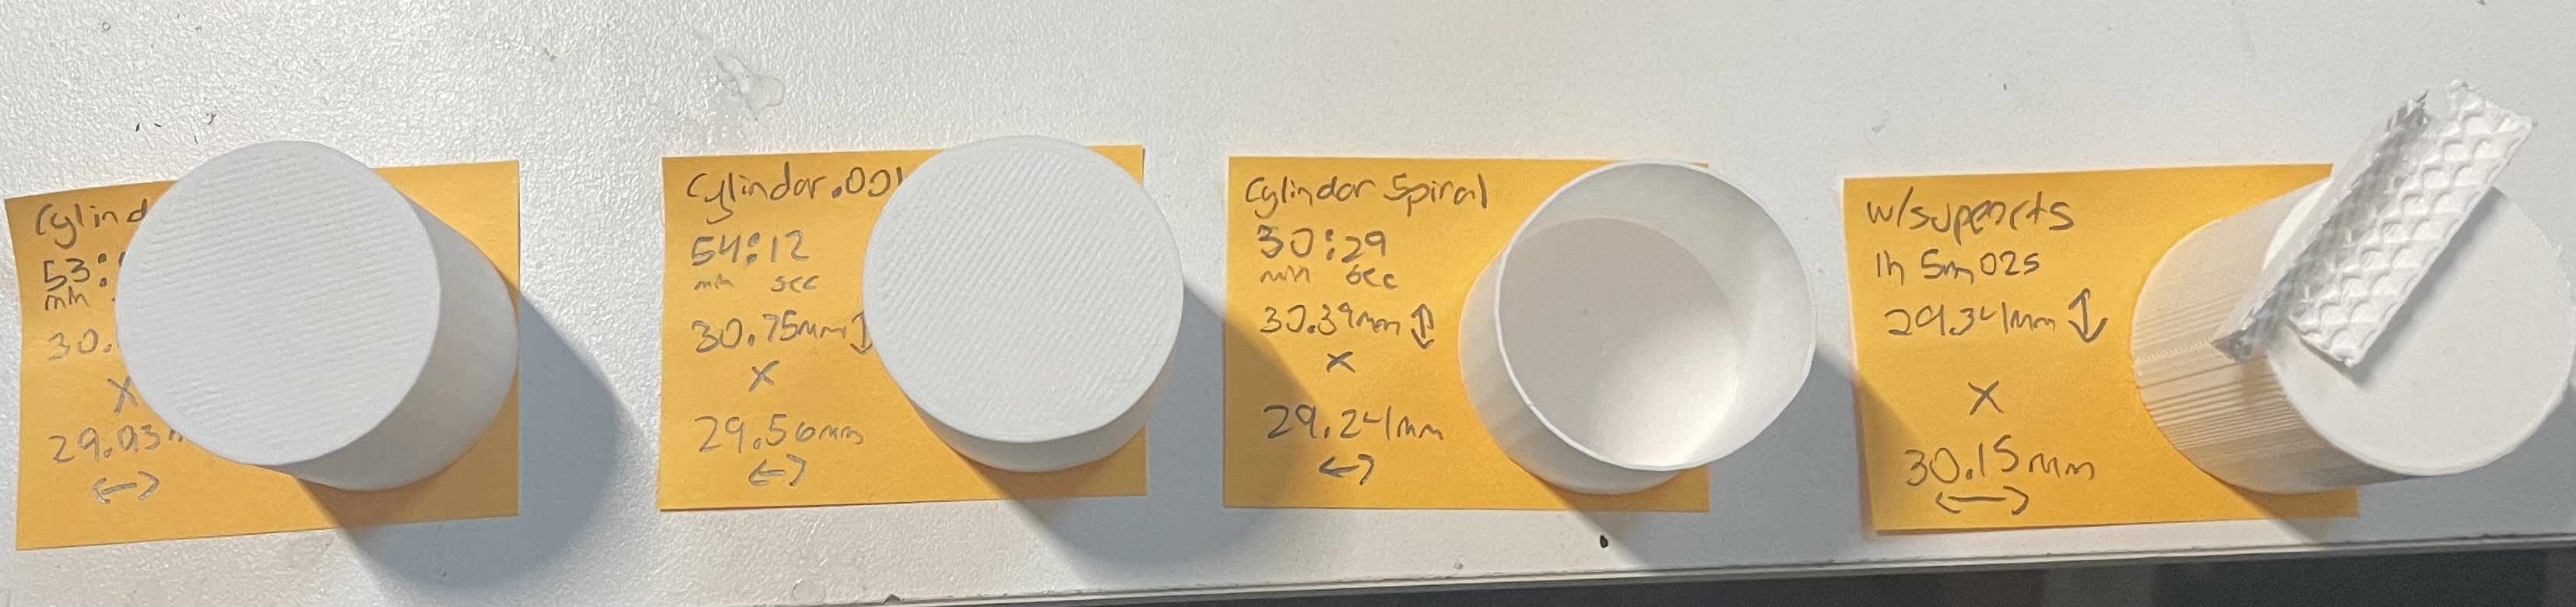 Cylind
53:
min
30.
X
29.93
Cylindar.001
54:12
min sec
30.75mm
X
29.56mm
Cylindar Spiral
30:29
min sec
30.39mm
X
29.24mm
w/supports
1h 5m 02s
29.34mm
X
30.15mm